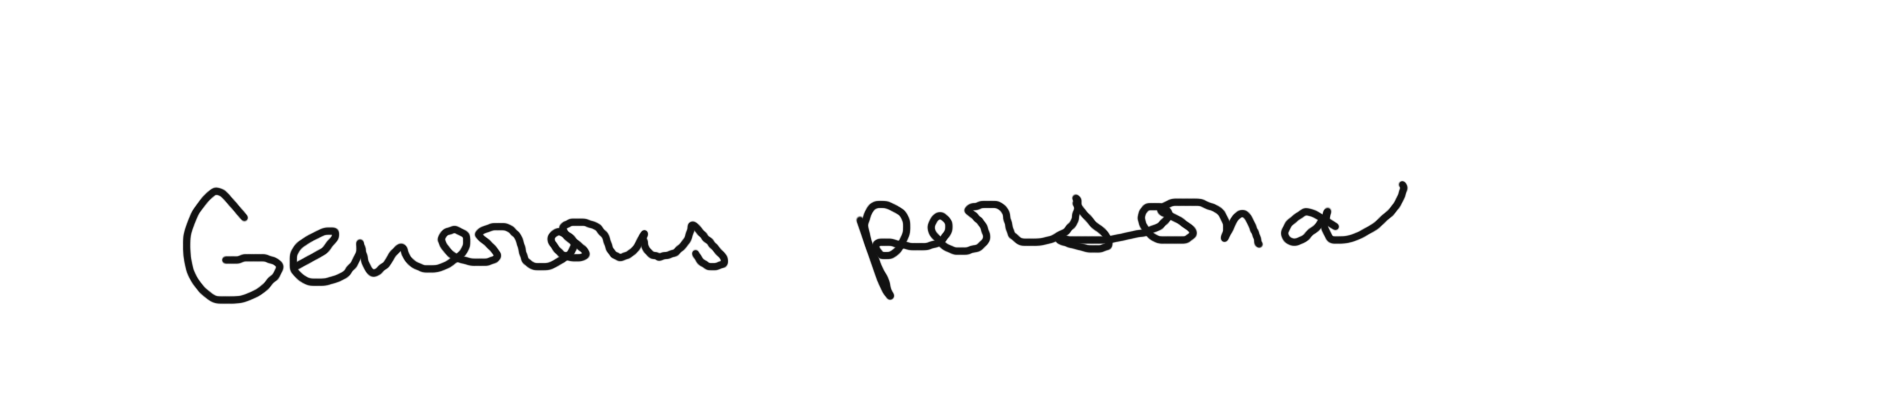 Generous persona